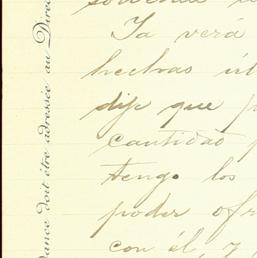 Ya verá
hechas
dije que
cantidad
tengo los
poder ofr
con él, y
dance doit être adressée au Direc